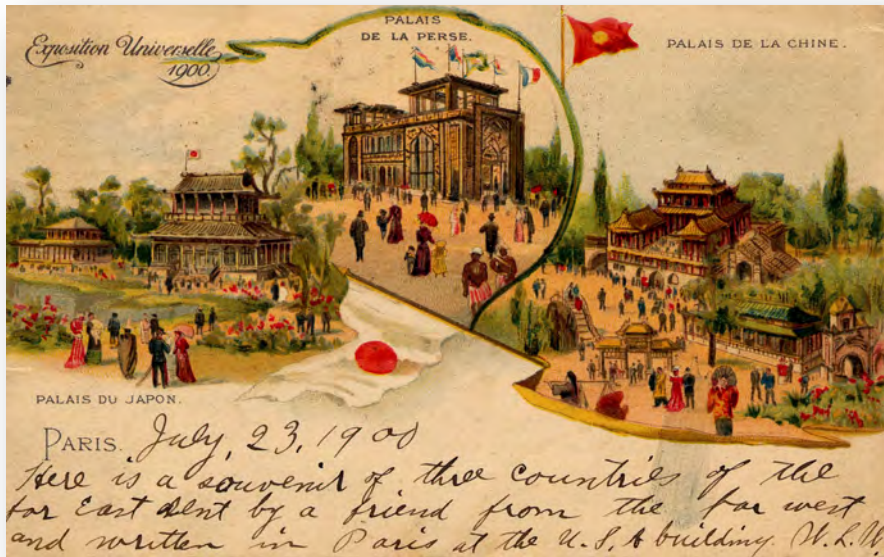 Exposition Universelle
1900.
PALAIS
DE LA PERSE.
PALAIS DE LA CHINE.
PALAIS DU JAPON.
PARIS. July, 23, 1900
Here is a souvenir of three countries of the
far East sent by a friend from the far west
and written in Paris at the U.S.A building. W.L.W